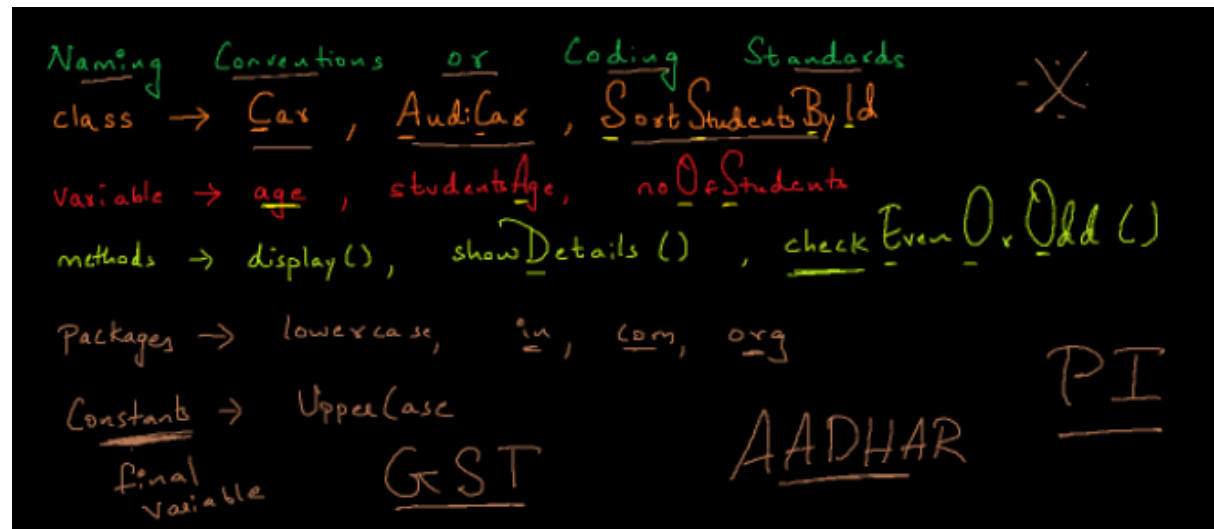 Naming Conventions or Coding Standards
class → Car , AudiCar , SortStudentsById
X
variable → age , studentsAge, noOfStudents
methods → display(), showDetails () , checkEvenOrOdd ()
packages → lowercase, in, com, org
PI
Constants → UpperCase
final variable
GST
AADHAR